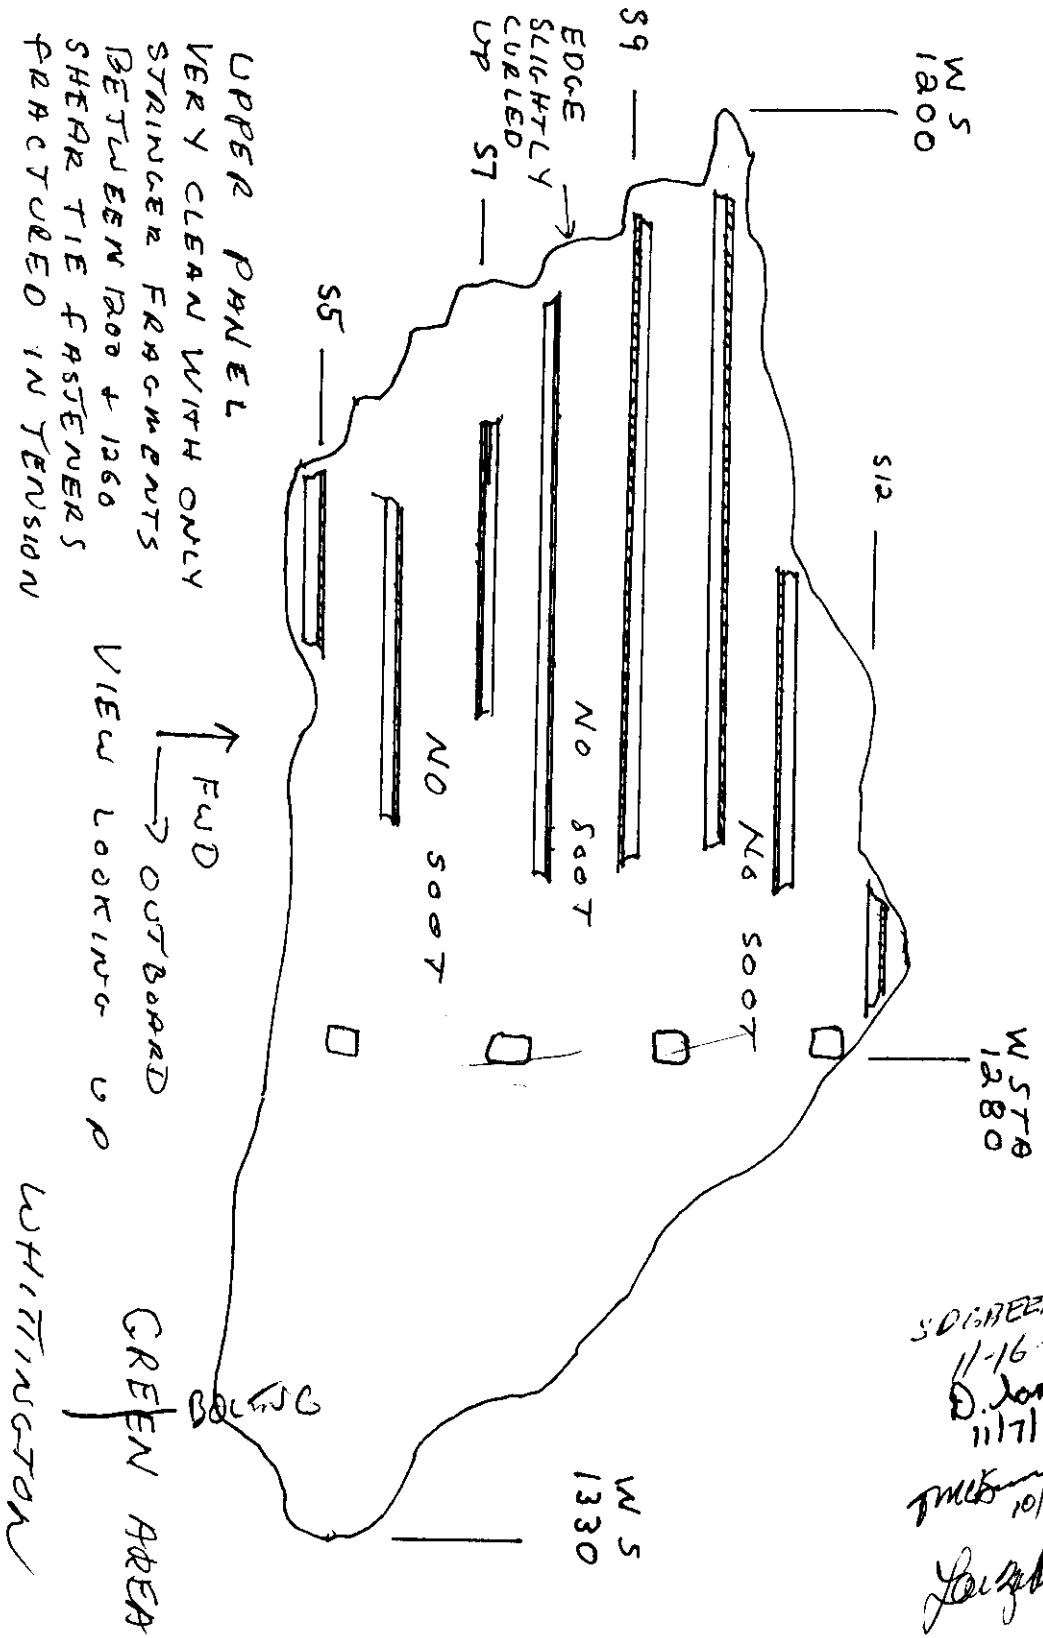 W S
1200
W STA
1280
W S
1330
S12
S9
EDGE
SLIGHTLY
CURLED
UP
S7
S5
NO SOOT
NO SOOT
NO SOOT
FWD
OUTBOARD
VIEW LOOKING UP
UPPER PANEL
VERY CLEAN WITH ONLY
STRINGER FRAGMENTS
BETWEEN 1200 + 1260
SHEAR TIE FASTENERS
FRACTURED IN TENSION
BOEING
GREEN AREA
WHITTINGTON
11-16
11/7/
10/